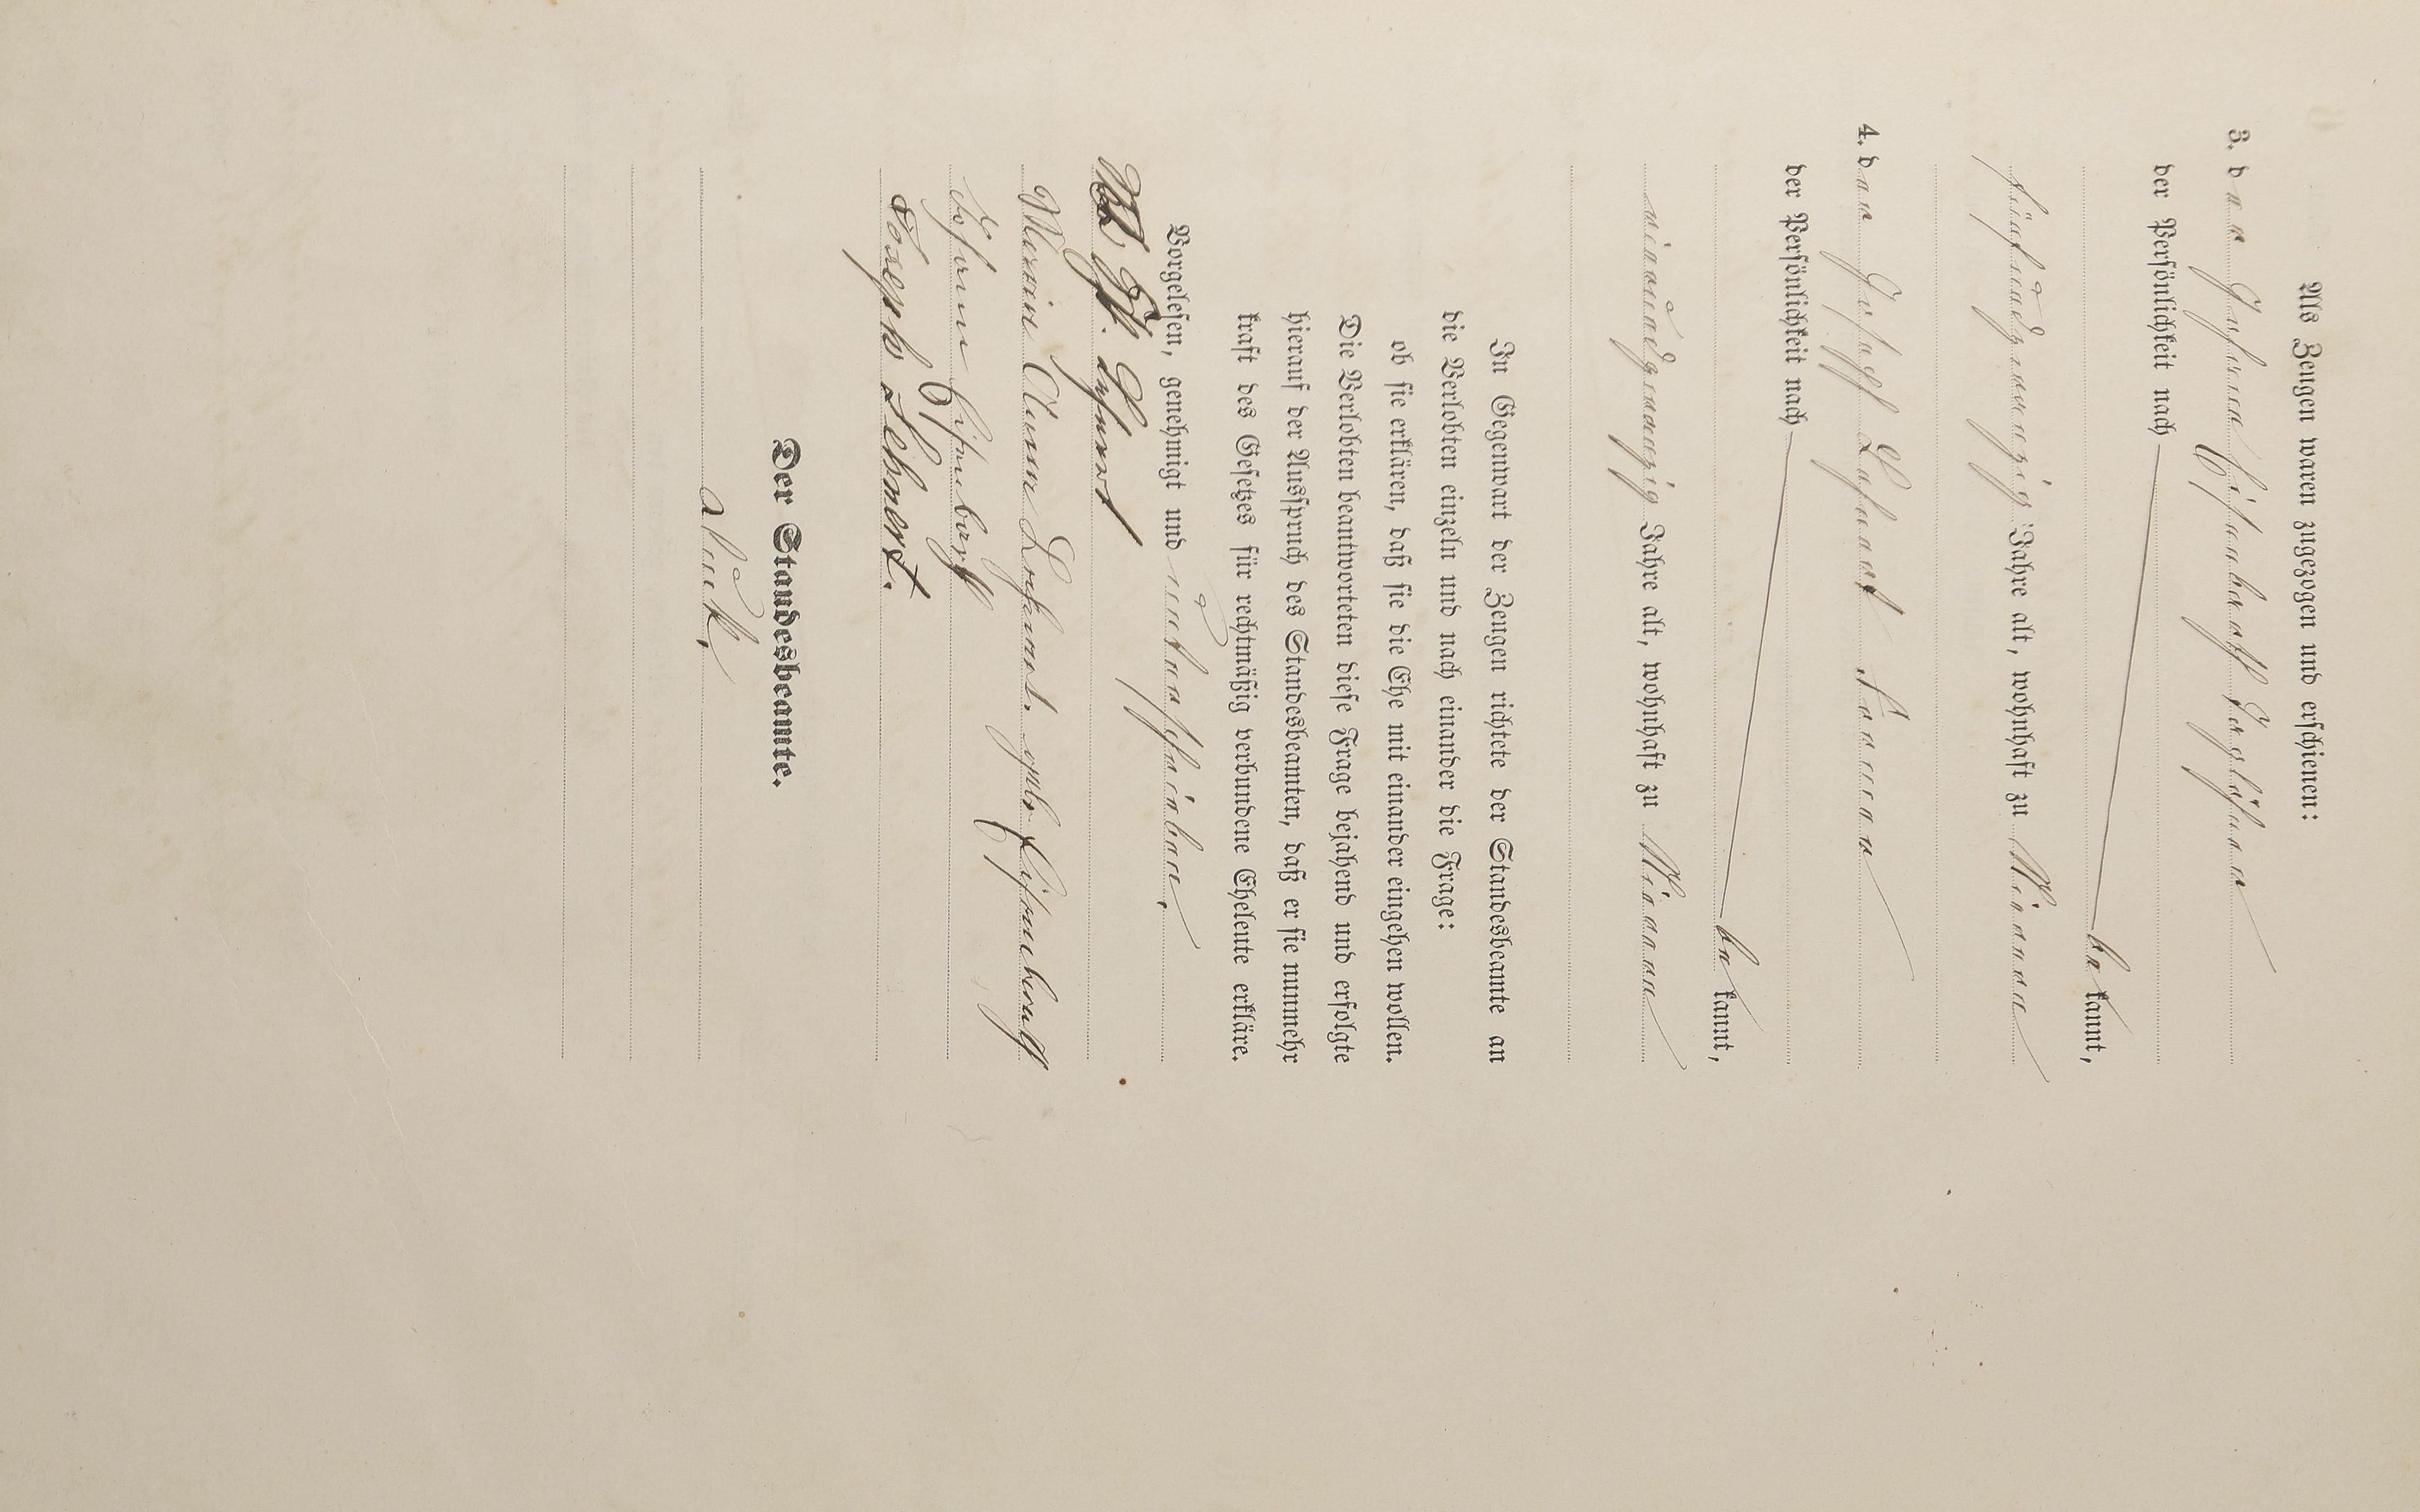 Als Zeugen waren zugezogen und erschienen:
3. der Johann Eisenbarth Taglöhner
der Persönlichkeit nach
be kannt,
fünfundzwanzig Jahre alt, wohnhaft zu
4. der Joseph Lehnert
der Persönlichkeit nach
be kannt,
vierundzwanzig Jahre alt, wohnhaft zu
In Gegenwart der Zeugen richtete der Standesbeamte an
die Verlobten einzeln und nach einander die Frage:
ob sie erklären, daß sie die Ehe mit einander eingehen wollen.
Die Verlobten beantworteten diese Frage bejahend und erfolgte
hierauf der Ausspruch des Standesbeamten, daß er sie nunmehr
kraft des Gesetzes für rechtmäßig verbundene Eheleute erkläre.
Vorgelesen, genehmigt und unterschrieben.
Lehnert
Maria Anna Lehnert. geb. Eisenbarth
Johann Eisenbarth
Joseph Lehnert.
Der Standesbeamte.